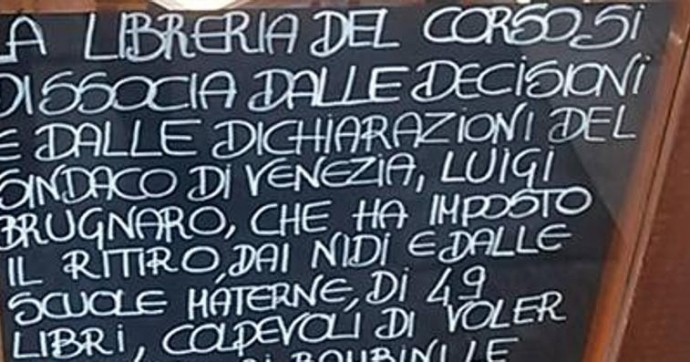 LA LIBRERIA DEL CORSO SI
DISSOCIA DALLE DECISIONI
E DALLE DICHIARAZIONI DEL
SINDACO DI VENEZIA, LUIGI
BRUGNARO, CHE HA IMPOSTO
IL RITIRO, DAI NIDI E DALLE
SCUOLE MATERNE, DI 49
LIBRI, COLPEVOLI DI VOLER
DI BAMBINI LE